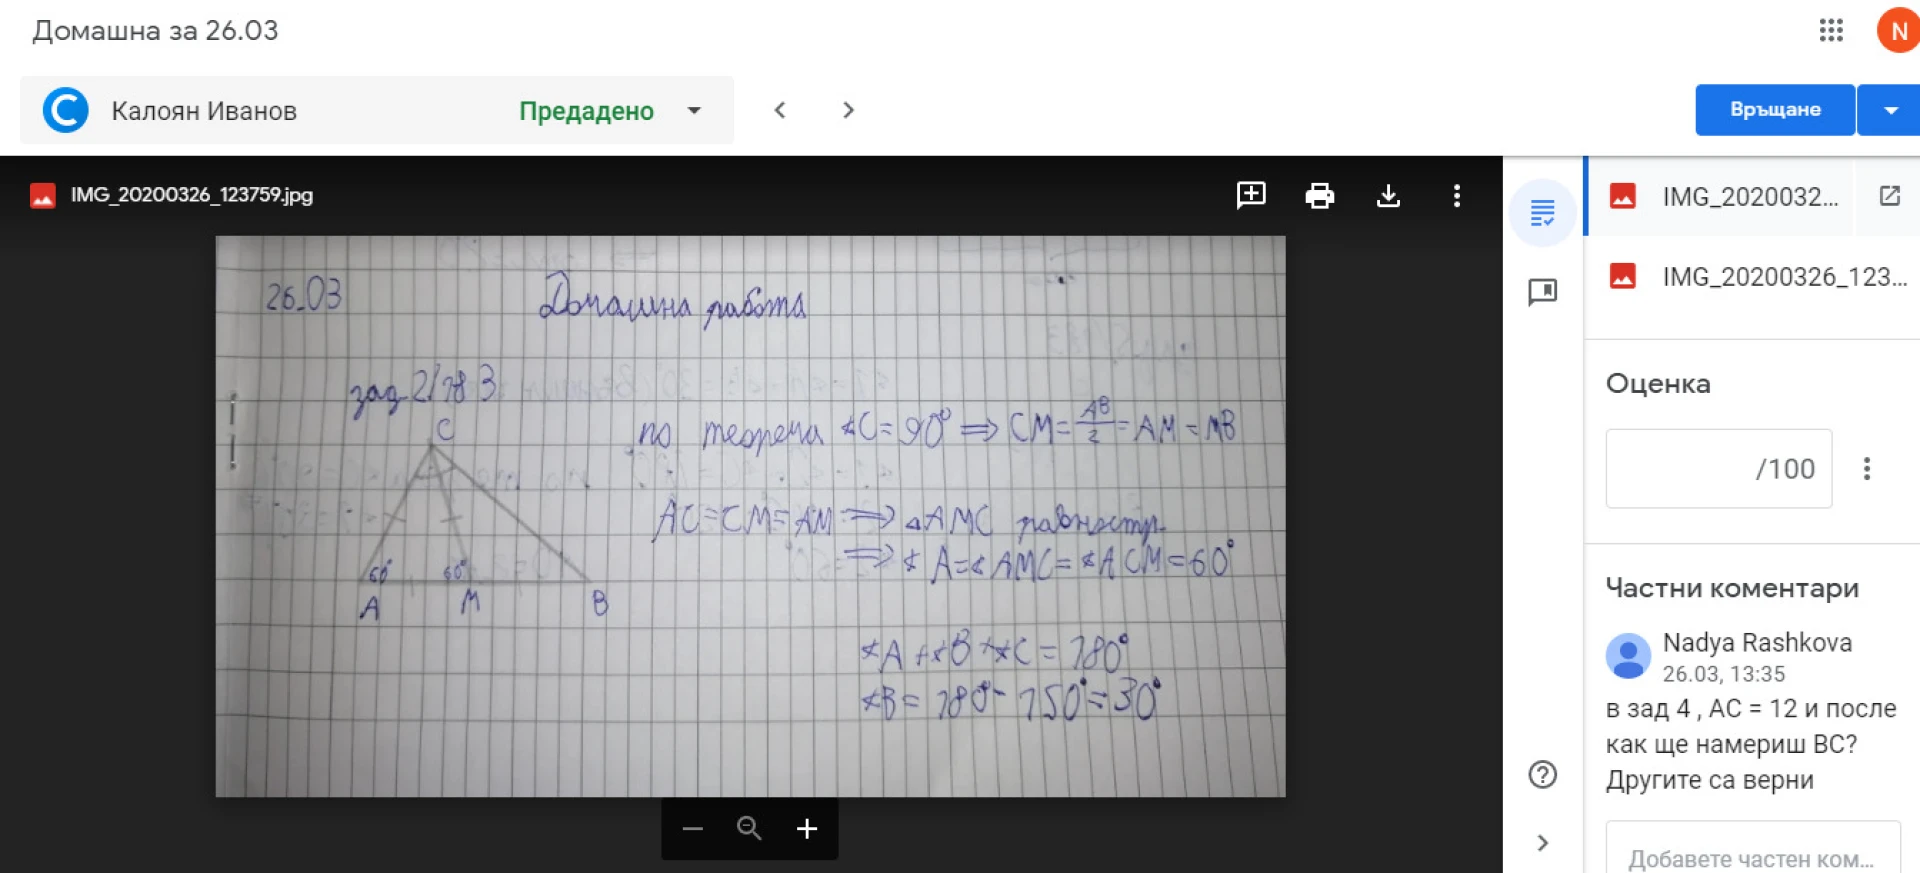 Домашна за 26.03
N
Калоян Иванов
Предадено
Връщане
IMG_20200326_123759.jpg
IMG_2020032...
IMG_20200326_123...
26.03
Домашна работа
зад 2/183
C
60°
60°
A
M
B
по теорема ∢C=90° ⇒ CM=AB/2=AM=MB
AC=CM=AM ⇒ △AMC равностр.
⇒ ∢A=∢AMC=∢ACM=60°
∢A+∢B+∢C=180°
∢B=180°-150°=30°
Оценка
/100
Частни коментари
Nadya Rashkova
26.03, 13:35
в зад 4 , AC = 12 и после
как ще намериш BC?
Другите са верни
Добавете частен ком...